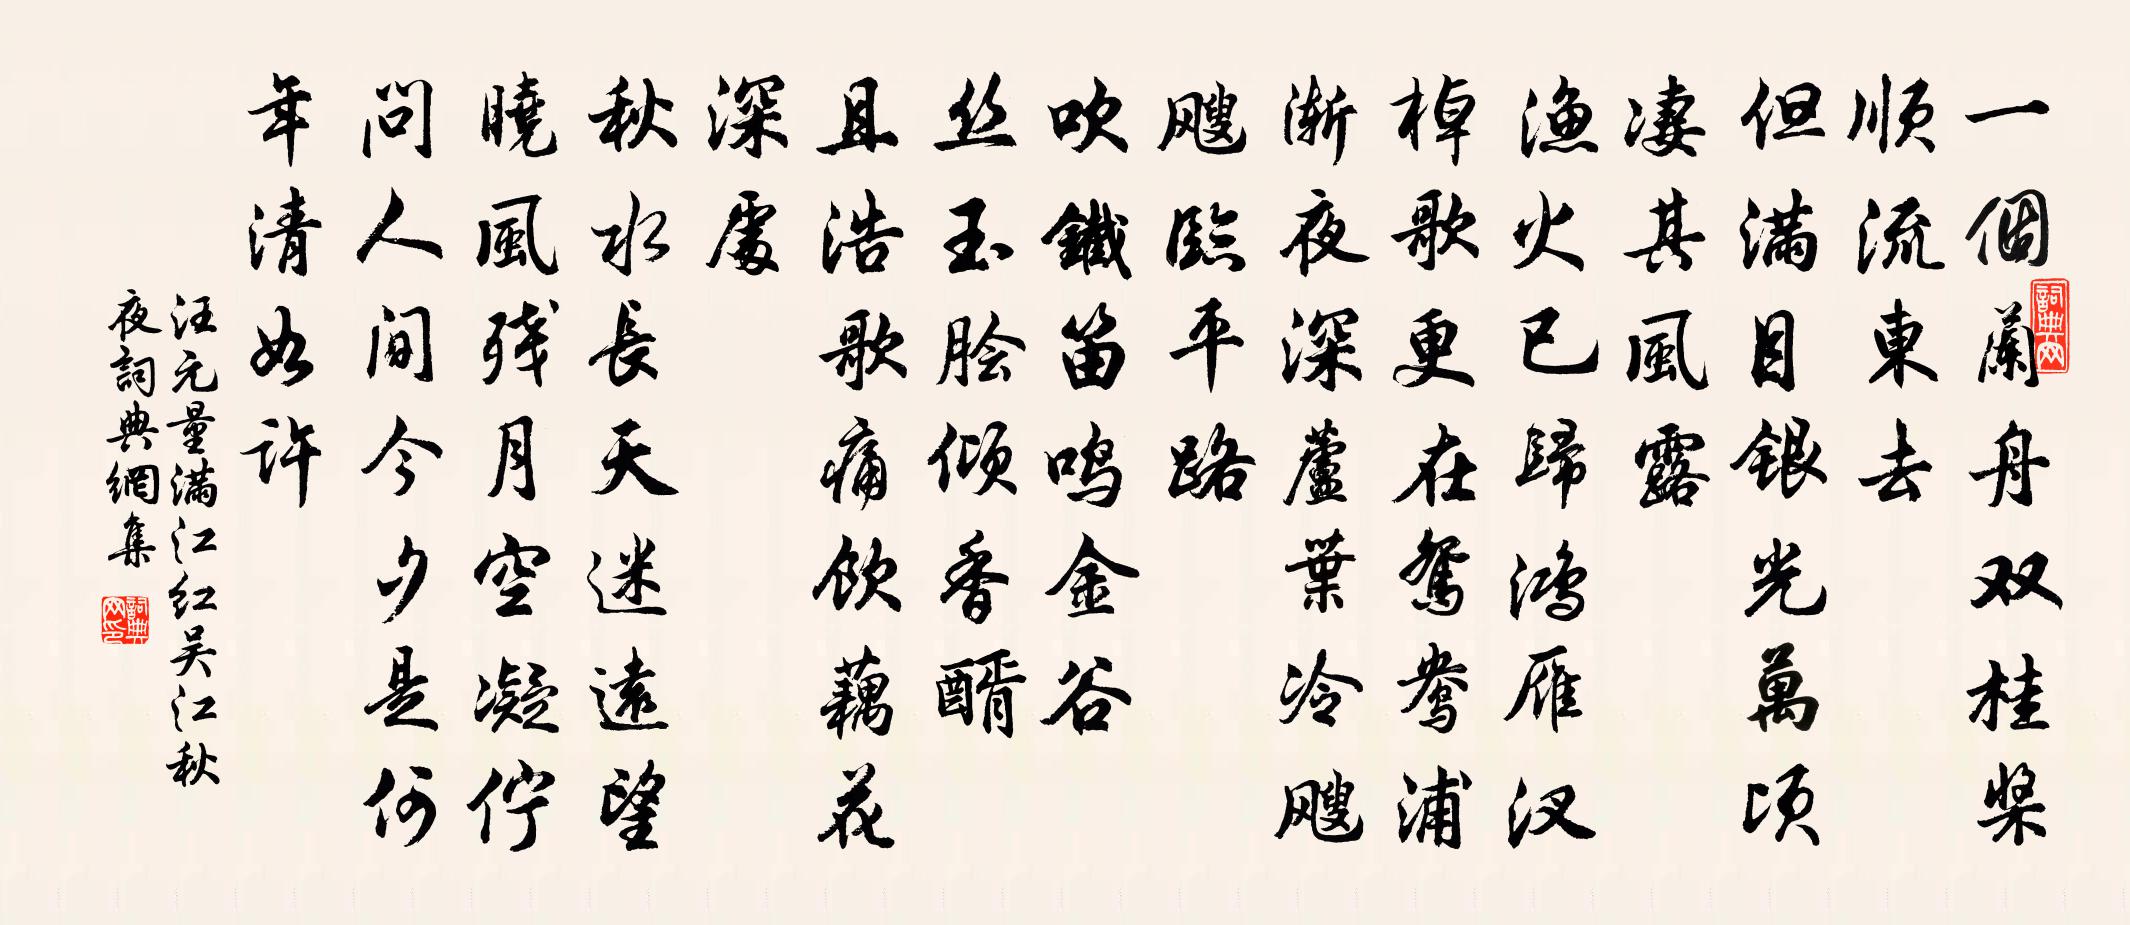 一個蘭舟双桂槳
順流東去
但满目銀光萬頃
凄其風露
漁火已歸鴻雁汊
棹歌更在鴛鴦浦
漸夜深蘆葉冷颼
颼臨平路
吹鐵笛鸣金谷
丝玉脍倾香醑
且浩歌痛飲藕花
深處
秋水長天迷遠望
曉風残月空凝佇
問人间今夕是何
年清如许
汪元量满江红吴江秋
夜詞典網集
詞典网
詞典网印